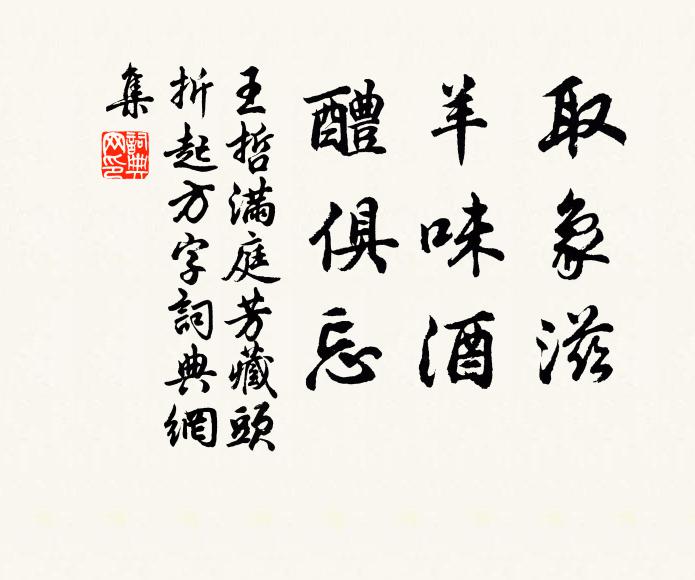 取象滋
羊味酒
醴俱忘
王哲滿庭芳藏頭
折起方字詞典網
集
詞典網印